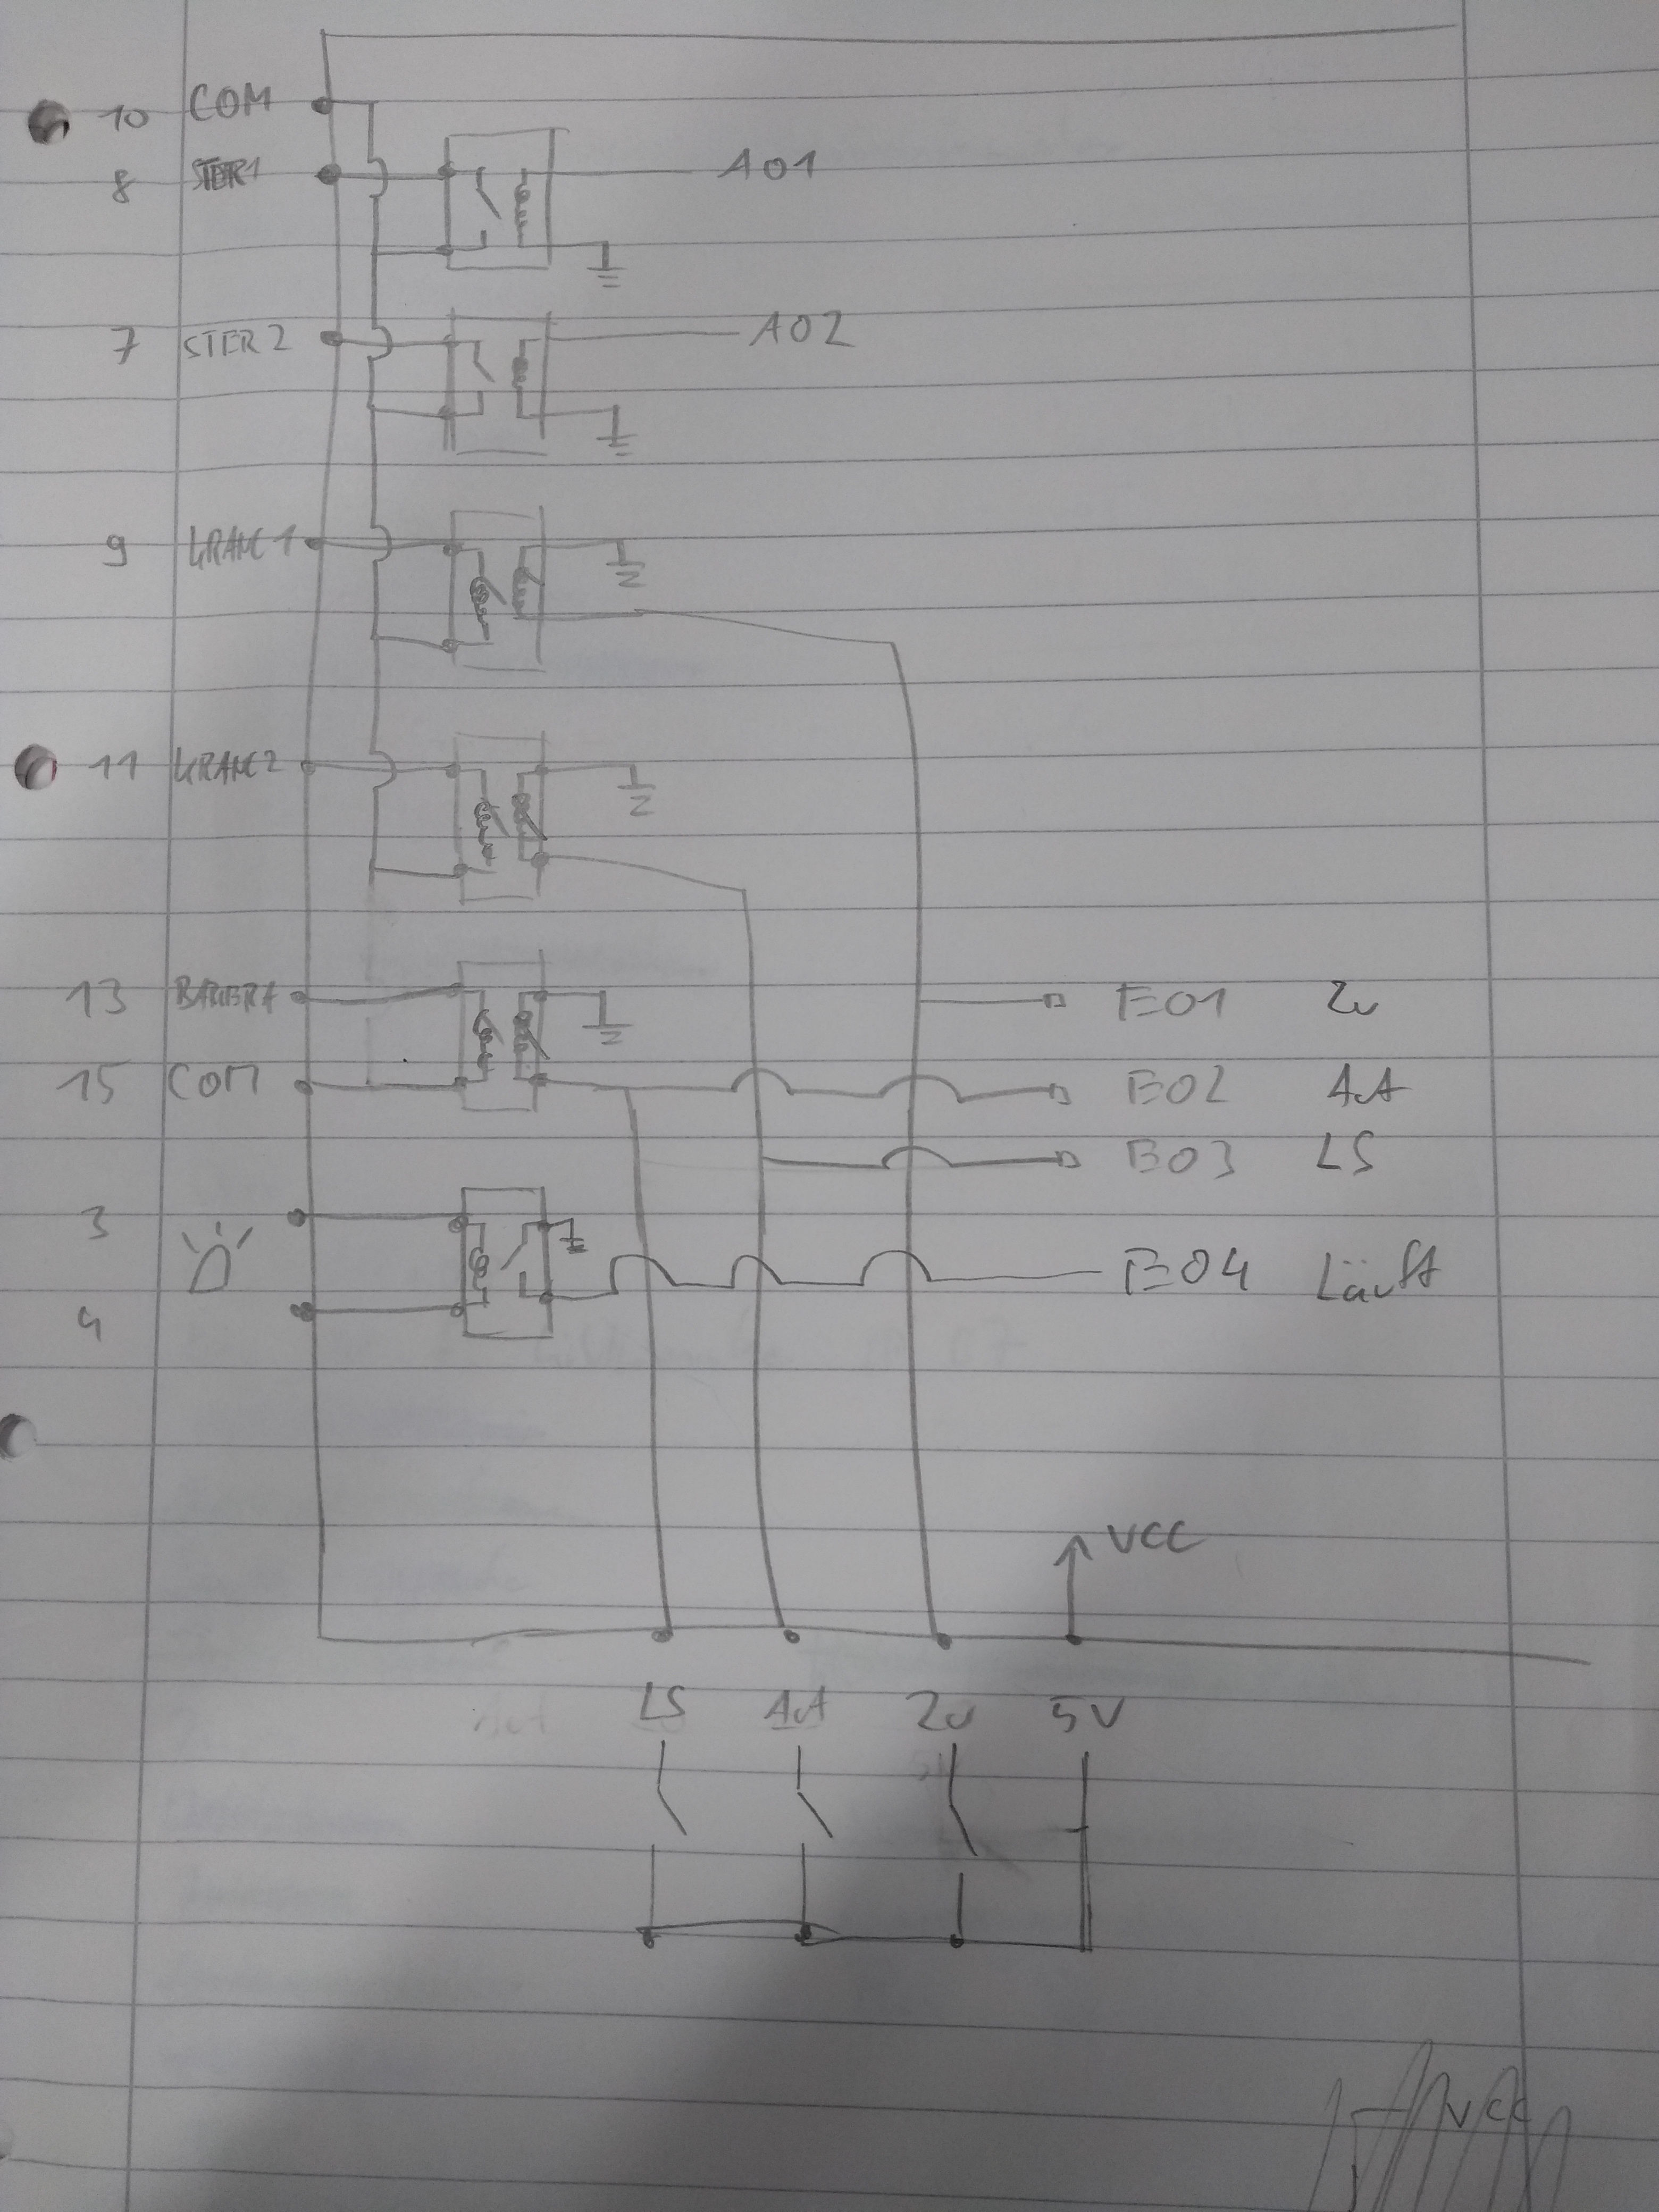 10 COM
8 STER1 A01
7 STER2 A02
9 KRANC1
11 KRANC2
13 E01 Zu
15 COM E02 Auf
E03 LS
3
E04 Läuft
4
VCC
LS Auf Zu 5V
VCC